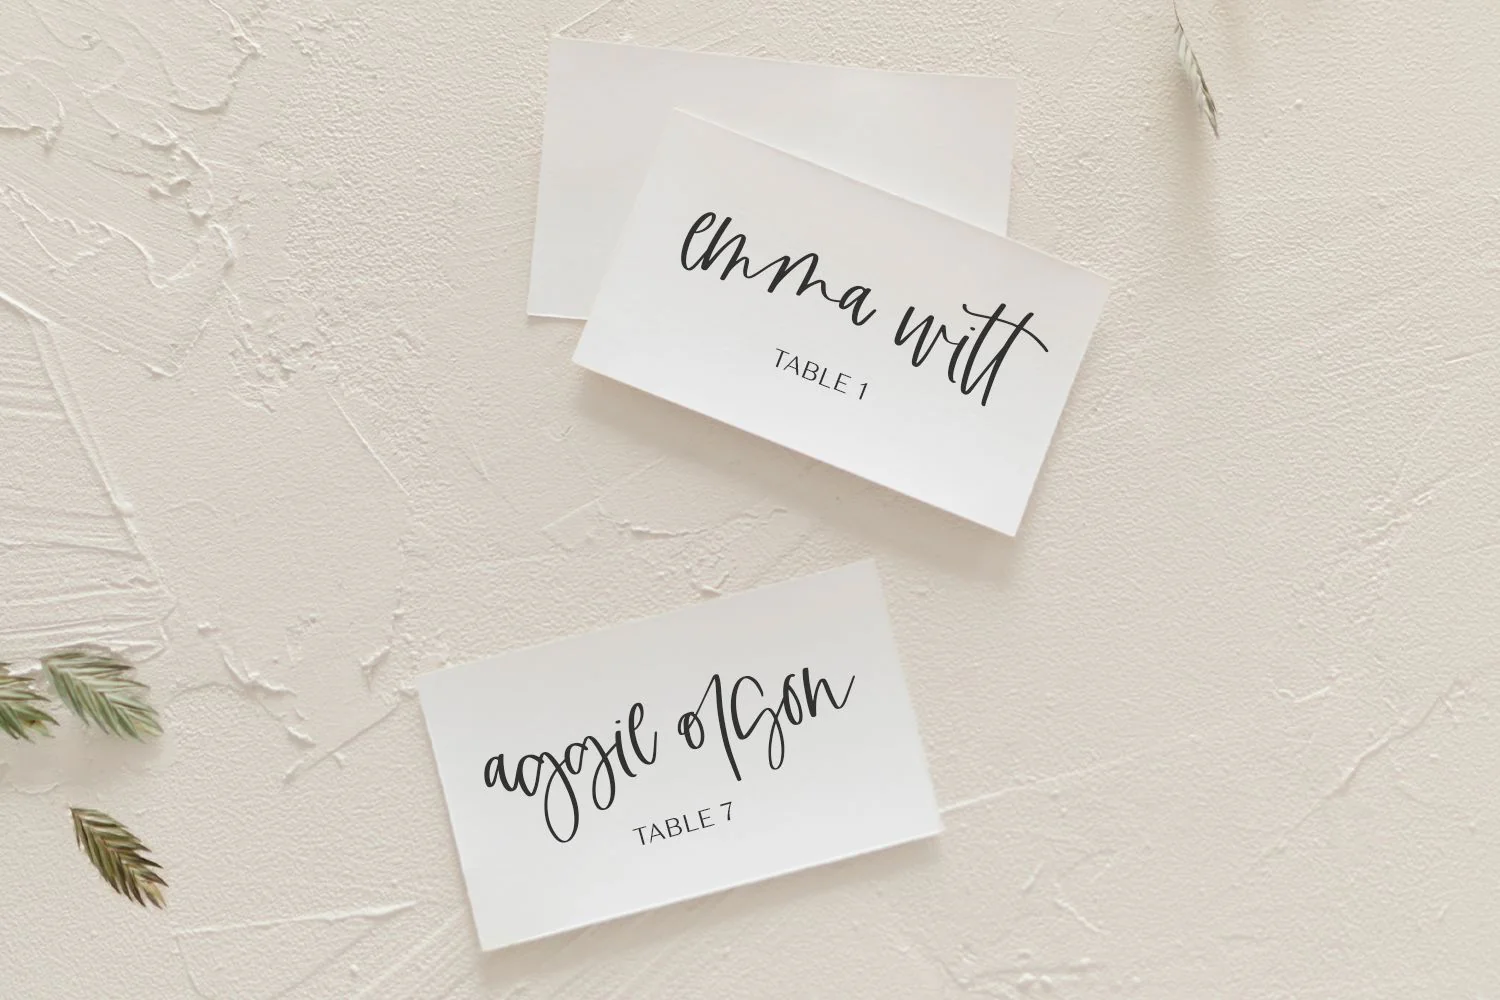 emma witt
TABLE 1
aggie olson
TABLE 7